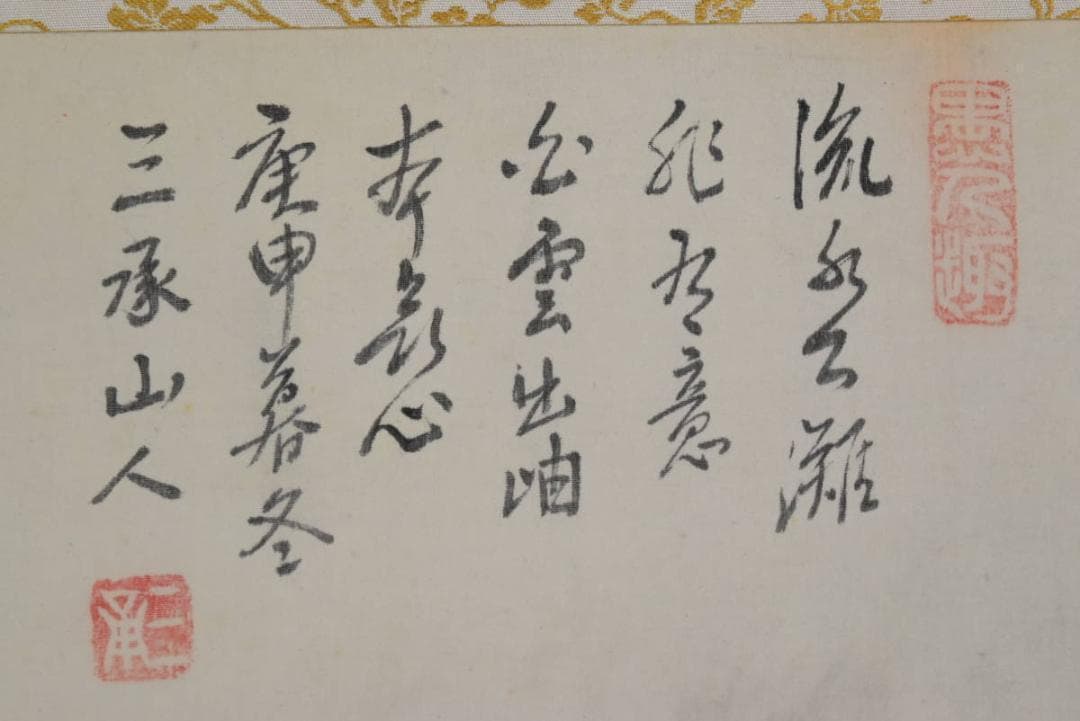 流水下灘
非有意
白雲出岫
本無心
庚申暮冬
三承山人